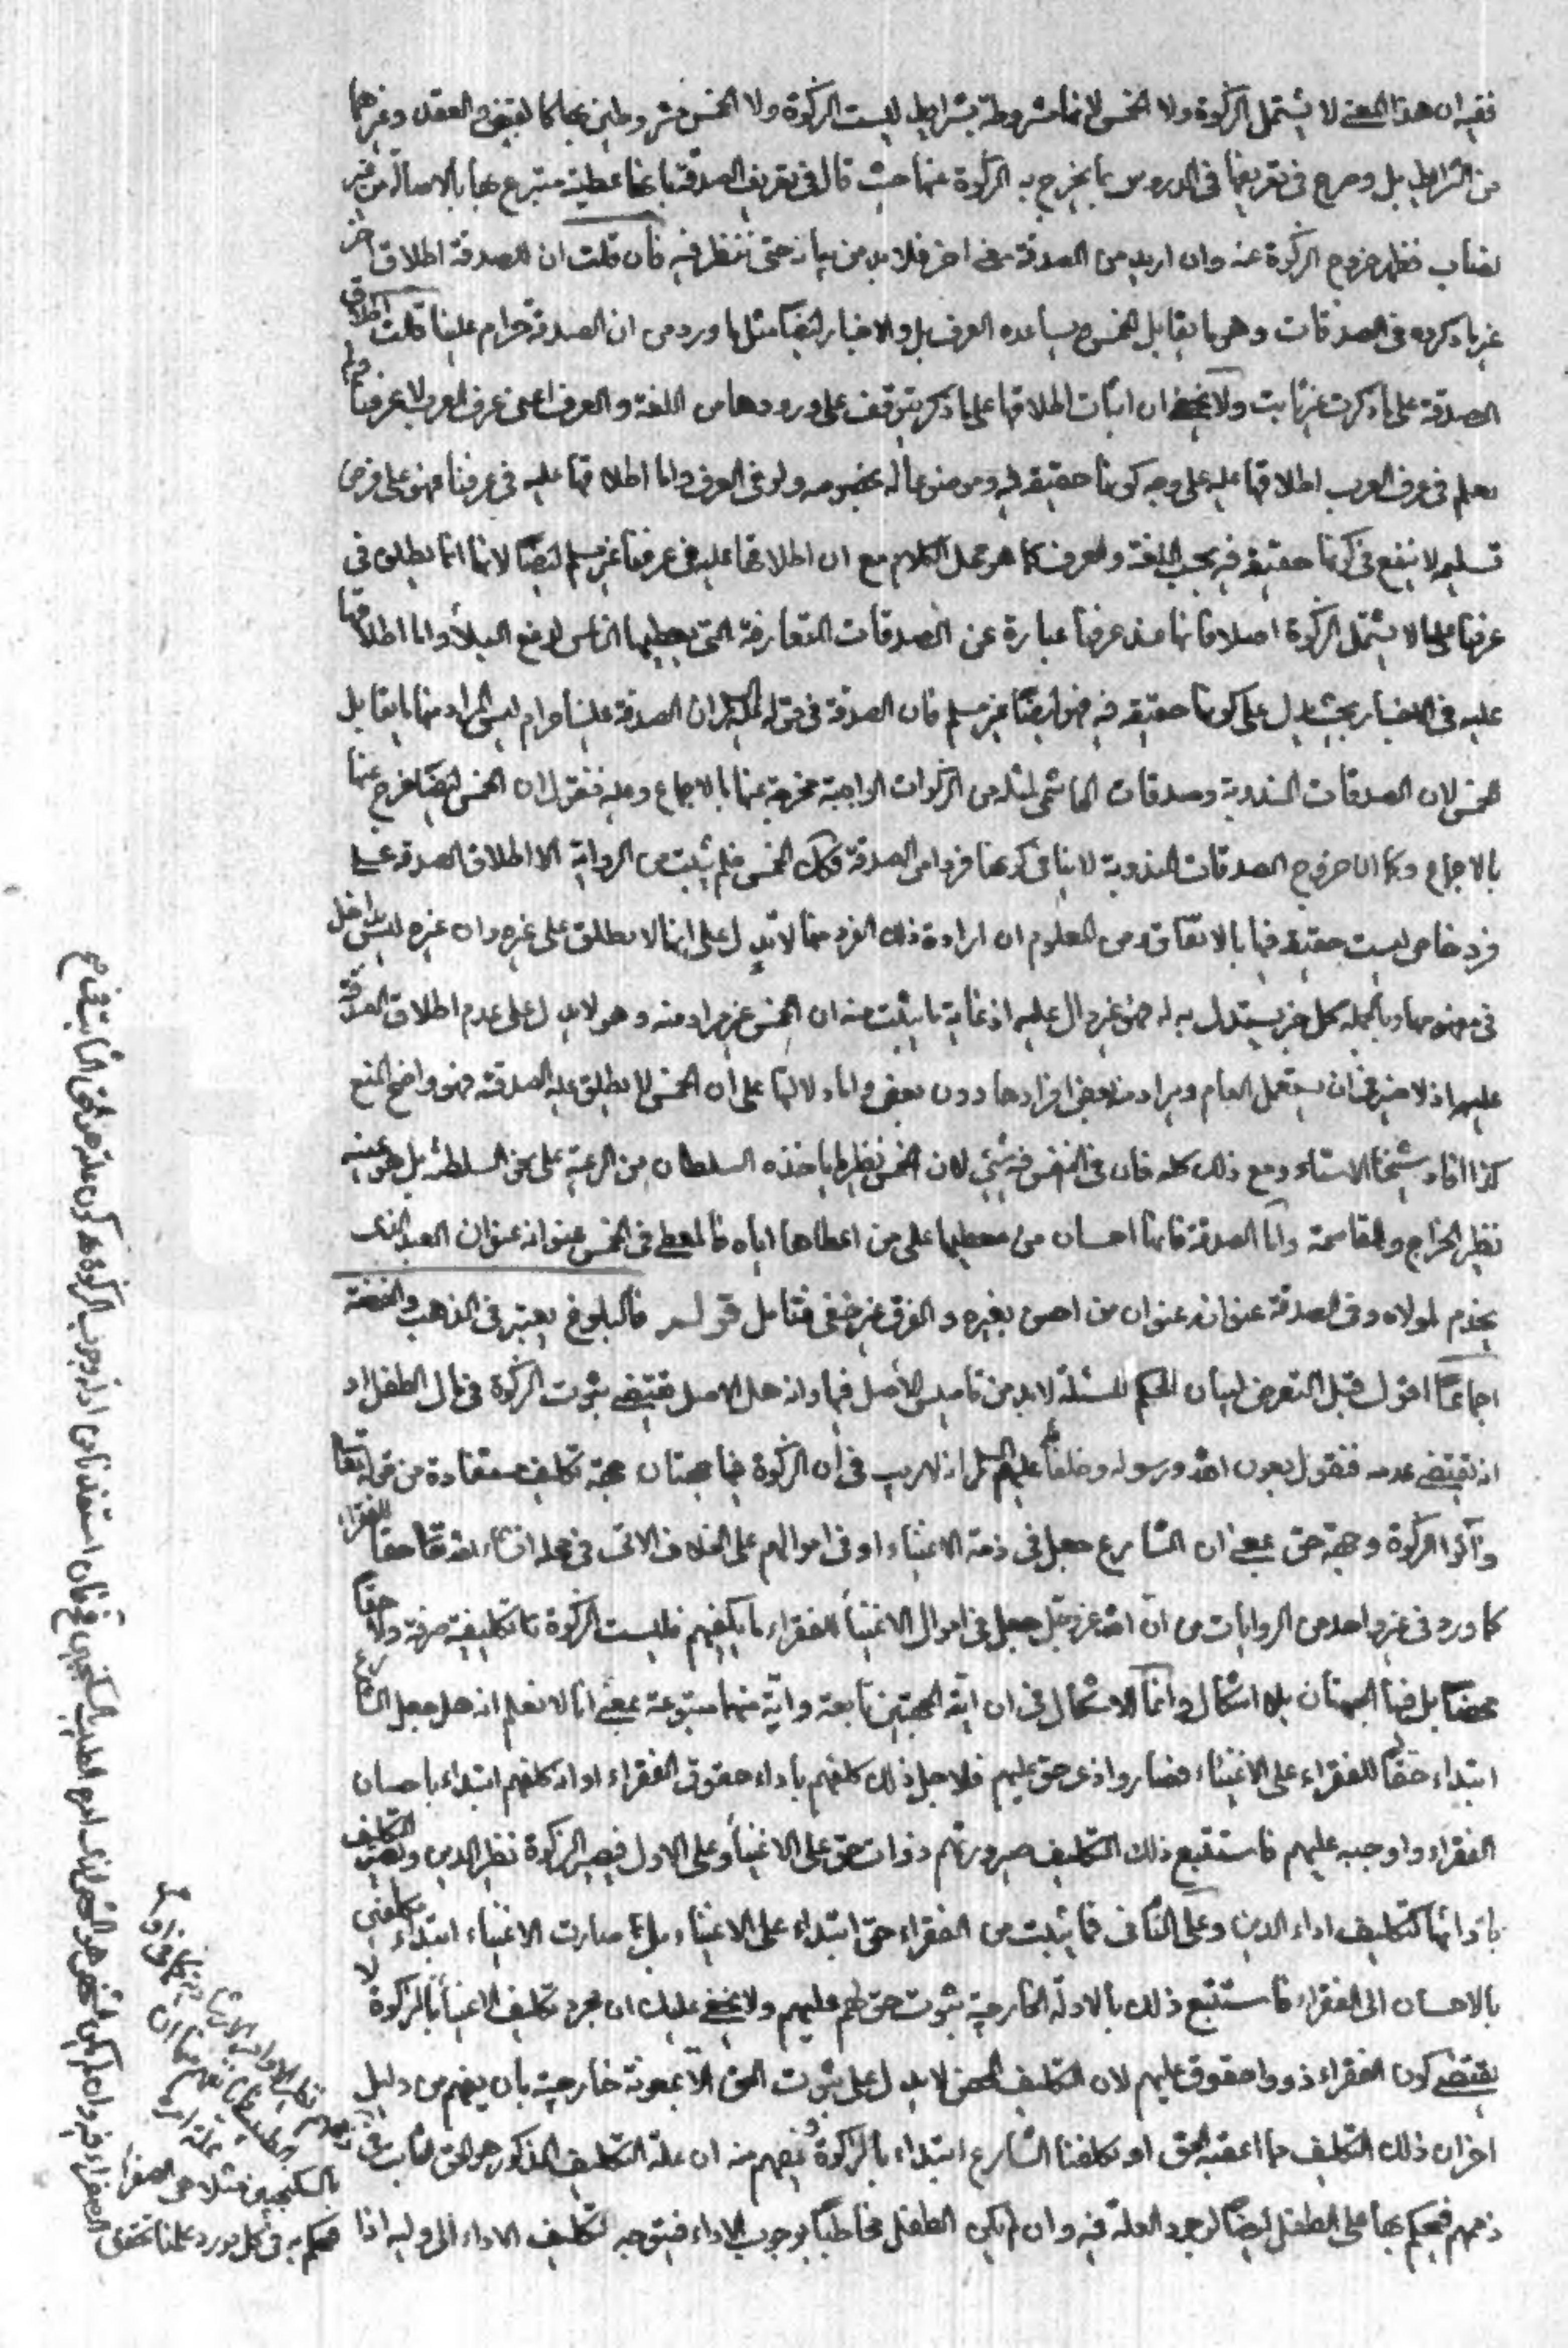 ففيه ان هذا المعنى لا يشتمل الزكوة ولا الخمس لانها مشروطة بشرايط ليست الزكوة ولا الخمس مشروطين بها كالقبض والعقد وغيرهما
من الشرايط بل وصرح في تعريفها في الدروس بما يخرج به الزكوة عنها حيث قال في تعريف الصدقة بانها عطية متبرع بها بالاصالة من غير
نصاب فظهر خروج الزكوة عنه وان اريد من الصدقة معنى اخر فلا بد من بيانه حتى ننظر فيه فان قلت ان للصدقة اطلاق اخر
غير ما ذكروه في الصدقات وهي ما يقابل الخمس يساعده العرف بل والاخبار ايضا مثل ما ورد من ان الصدقة حرام علينا قلت اطلاق
الصدقة على ما ذكرت غير ثابت ولا يخفى ان اثبات اطلاقها على ما ذكر يتوقف على ورودها من اللغة والعرف اعني عرف العرب لا عرفنا ولم
نعلم في عرف العرب اطلاقها عليه على وجه كونها حقيقة فيه وموضوعا له بخصوصه ولو في العرف واما اطلاقها عليه في عرفنا فهو على فرض
تسليمه لا ينفع في كونها حقيقة فيه بحسب اللغة والعرف كما هو محل الكلام مع ان اطلاقها عليه في عرفنا غير مسلم ايضا لانها انما يطلق في
عرفنا على ما لا يشتمل الزكوة اصلا فانها عند عرفنا عبارة عن الصدقات المتعارفة التي يعطيها الناس لدفع البلاء واما اطلاقها
عليه في الاخبار بحيث يدل على كونها حقيقة فيه فهو ايضا غير مسلم فان الصدقة في قوله ان الصدقة علينا حرام ليس المراد منها ما يقابل
الخمس لان الصدقات المندوبة وصدقات الهاشمي لمثله من الزكوات الواجبة مخرجة عنها بالاجماع وعليه فنقول ان الخمس ايضا خرج عنها
بالاجماع وكما ان خروج الصدقات المندوبة لا ينافي كونها فردا من الصدقة فكذلك الخمس فلم يثبت من الرواية الا اطلاق الصدقة على
فرد خاص ليست حقيقة فيها بالاتفاق ومن المعلوم ان ارادة ذلك الفرد منها لا تدل على انها لا يطلق على غيره وان غيره ليس بداخل
في مفهومها وبالجملة كل خبر يستدل به له فهو غير دال عليه اذ غاية ما يثبت منه ان الخمس غير مراد منه وهو لا يدل على عدم اطلاق الصدقة
عليه اذ لا ضير في ان يستعمل العام ويراد منه بعض افرادها دون بعض واما دلالتها على ان الخمس لا يطلق عليه الصدقة فهو واضح المنع
كذا افاد شيخنا الاستاد ومع ذلك كله فان في النفس فيه شيئ لان الخمس نظير ما ياخذه السلطان من الرعية على نحو السلطنة بل هو بعينه
نظير الخراج والمقاسمة واما الصدقة فانها احسان من معطيها على من اعطاها اياه فالمعطي في الخمس عنوانه عنوان العبد الذي
يخدم لمولاه وفي الصدقة عنوانه عنوان من احسن بغيره والفرق غير خفي فتامل قوله فالبلوغ يعتبر في الذهب والفضة
اجماعا اقول قبل التعرض لبيان الحكم للمسئلة لا بد من تاسيس الاصل فيها وانه هل الاصل يقتضي ثبوت الزكوة في مال الطفل او
انه يقتضي عدمه فنقول بعون الله ورسوله وخلفائه عليهم السلام انه لا ريب في ان الزكوة فيها جهتان جهة تكليف مستفادة من قوله تعالى
وآتوا الزكوة وجهة حق بمعنى ان الشارع جعل في ذمة الاغنياء او في اموالهم على الخلاف الاتي في محله انشاء الله تعالى حقا للفقراء
كما ورد في غير واحد من الروايات من ان الله عز وجل جعل في اموال الاغنياء للفقراء ما يكفيهم فليست الزكوة تكليفية صرفة ولا حقا
محضا بل فيها الجهتان بلا اشكال وانما الاشكال في ان اية الجهتين تابعة واية منهما متبوعة بمعنى انا لا نعلم انه هل جعل الشارع
ابتداء حقا للفقراء على الاغنياء فصاروا ذوى حق عليهم فلاجل ذلك كلفهم باداء حقوق الفقراء او انه كلفهم ابتداء باحسان
الفقراء واوجبه عليهم فاستتبع ذلك التكليف صيرورتهم ذوات حق على الاغنياء وعلى الاول فيصير الزكوة نظير الدين ويصير التكليف
بادائها كتكليف اداء الدين وعلى الثاني فما يثبت من الفقراء حق ابتداء على الاغنياء بل صارت الاغنياء ابتداء مكلفين
بالاحسان الى الفقراء فاستتبع ذلك بالادلة الخارجية ثبوت حق لهم عليهم ولا يخفى عليك ان مجرد تكليف الاغنياء بالزكوة لا
يقتضي كون الفقراء ذووا حقوق عليهم لان التكليف المحض لا يدل على ثبوت الحق الا بمعونة خارجية بان يفهم من دليل
اخر ان ذلك التكليف مما اعقبه الحق او كلفنا الشارع ابتداء بالزكوة ونفهم منه ان علة التكليف المذكور هو الحق الثابت في
ذمهم فيحكم بها على الطفل ايضا لوجود العلة فيه وان لم يكن الطفل مخاطبا بوجوب الاداء فيتوجه تكليف الاداء الى وليه اذا